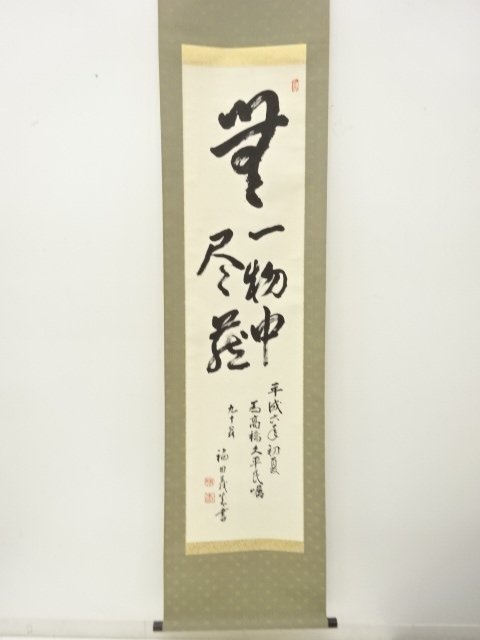 無
一物中
尽蔵
平成六年初夏
為高橋文平氏嘱
九十翁
福田義之書